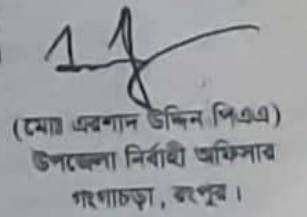 (মোঃ এরশাদ উদ্দিন পিএএ)
উপজেলা নির্বাহী অফিসার
গংগাচড়া, রংপুর।